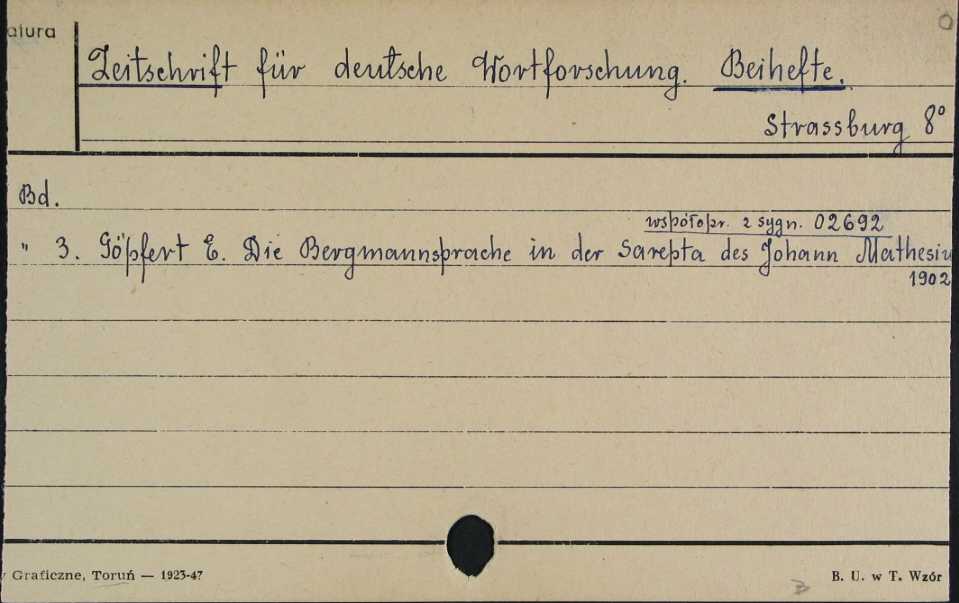 atura
Zeitschrift für deutsche Wortforschung. Beihefte.
Strassburg 8°
Bd.
współopr. z sygn. 02692
" 3. Göpfert E. Die Bergmannsprache in der Sarepta des Johann Mathesiu
1902
Graficzne, Toruń — 1923-47
B. U. w T. Wzór